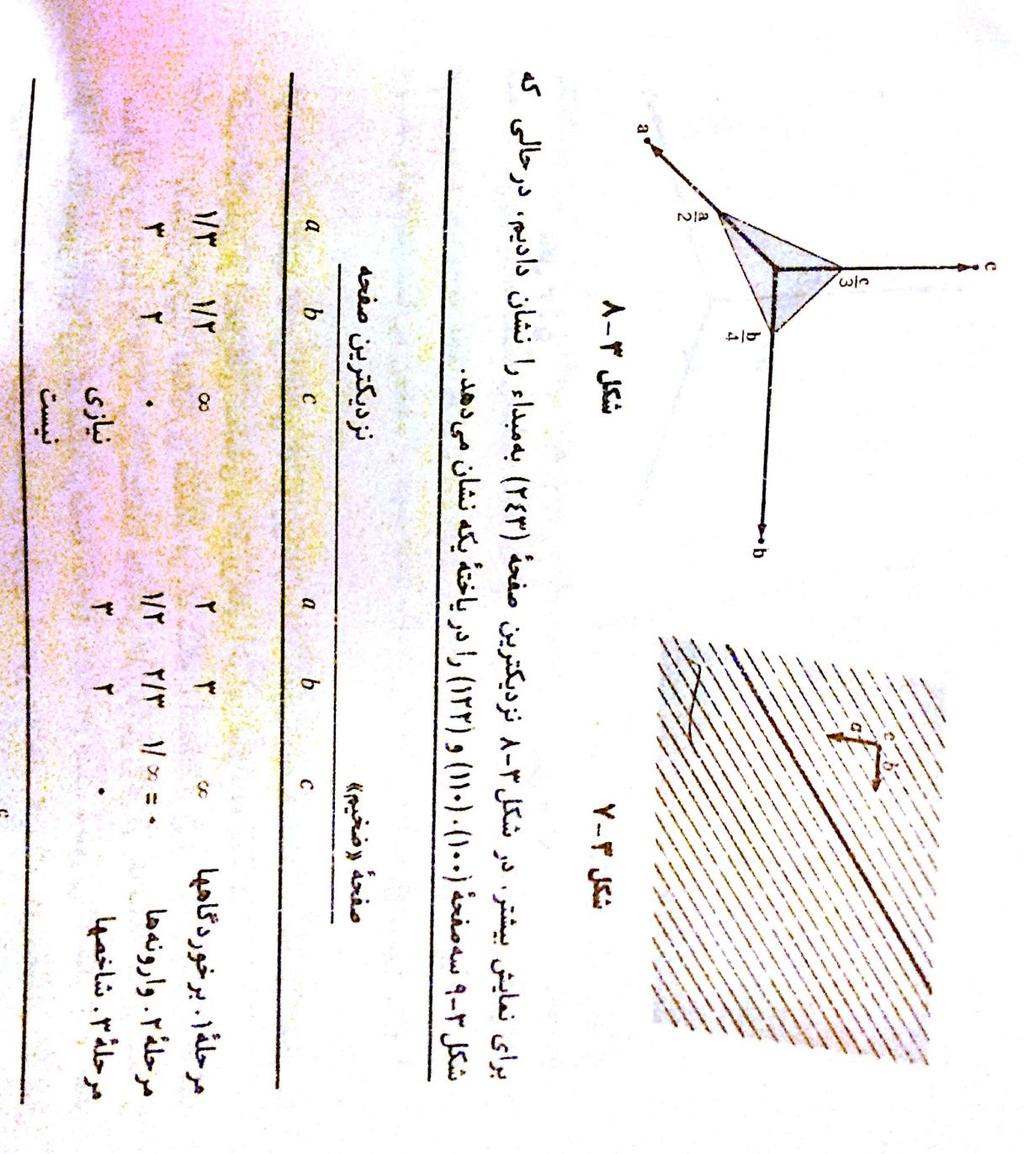 c
b
a
شکل ۳-۷
c
c/3
b/4
b
a/2
a
شکل ۳-۸
برای نمایش بیشتر، در شکل ۳-۸ نزدیکترین صفحهٔ (۲۴۳) به‌مبداء را نشان دادیم، درحالی که
شکل ۳-۹ سه صفحهٔ (۱۰۰)، (۱۱۰) و (۱۲۲) را در یاختهٔ یکه نشان می‌دهد.
صفحهٔ «ضخیم» نزدیکترین صفحه
a b c a b c
مرحلهٔ ۱. برخوردگاهها ۲ ۳ ∞ ۱/۳ ۱/۲ ∞
مرحلهٔ ۲. وارونه‌ها ۱/۲ ۲/۳ ۱/∞=۰ ۳ ۲ ۰
مرحلهٔ ۳. شاخصها ۳ ۲ ۰ نیازی
نیست
c